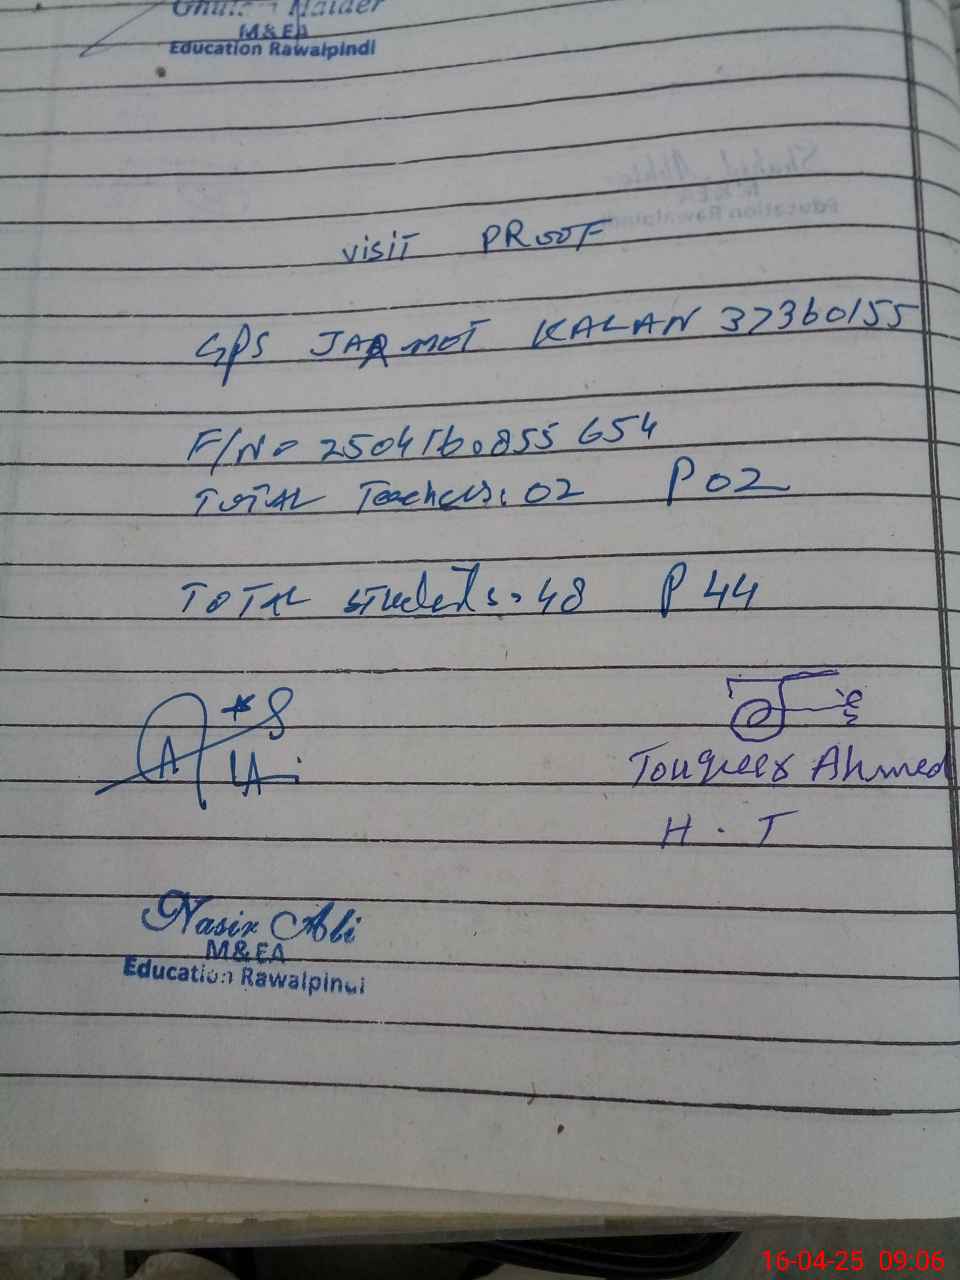 Ghulam Haider
M&EA
Education Rawalpindi
Shahid
M&EA
Education Rawalpindi
visit PROOF
GPS JARMOT KALAN 37360155
F/No 250416.0855654
TOTAL Teachers: 02 P 02
TOTAL students. 48 P 44
Touqeer Ahmed
H.T
Nasir Ali
M&EA
Education Rawalpindi
16-04-25 09:06